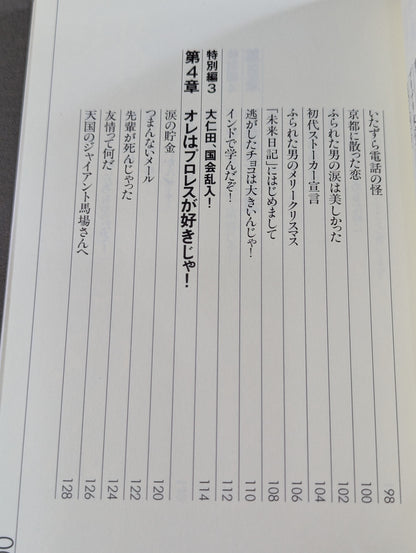 いたずら電話の怪 98
京都に散った恋 100
ふられた男の涙は美しかった 102
初代ストーカー宣言 104
ふられた男のメリークリスマス 106
「未来日記」にはじめまして 108
逃がしたチョコは大きいんじゃ! 110
インドで学んだぞ! 112
特別編3 大仁田、国会乱入! 114
第4章 オレはプロレスが好きじゃ!
涙の貯金 120
つまんないメール 122
先輩が死んじゃった 124
友情って何だ 126
天国のジャイアント馬場さんへ 128